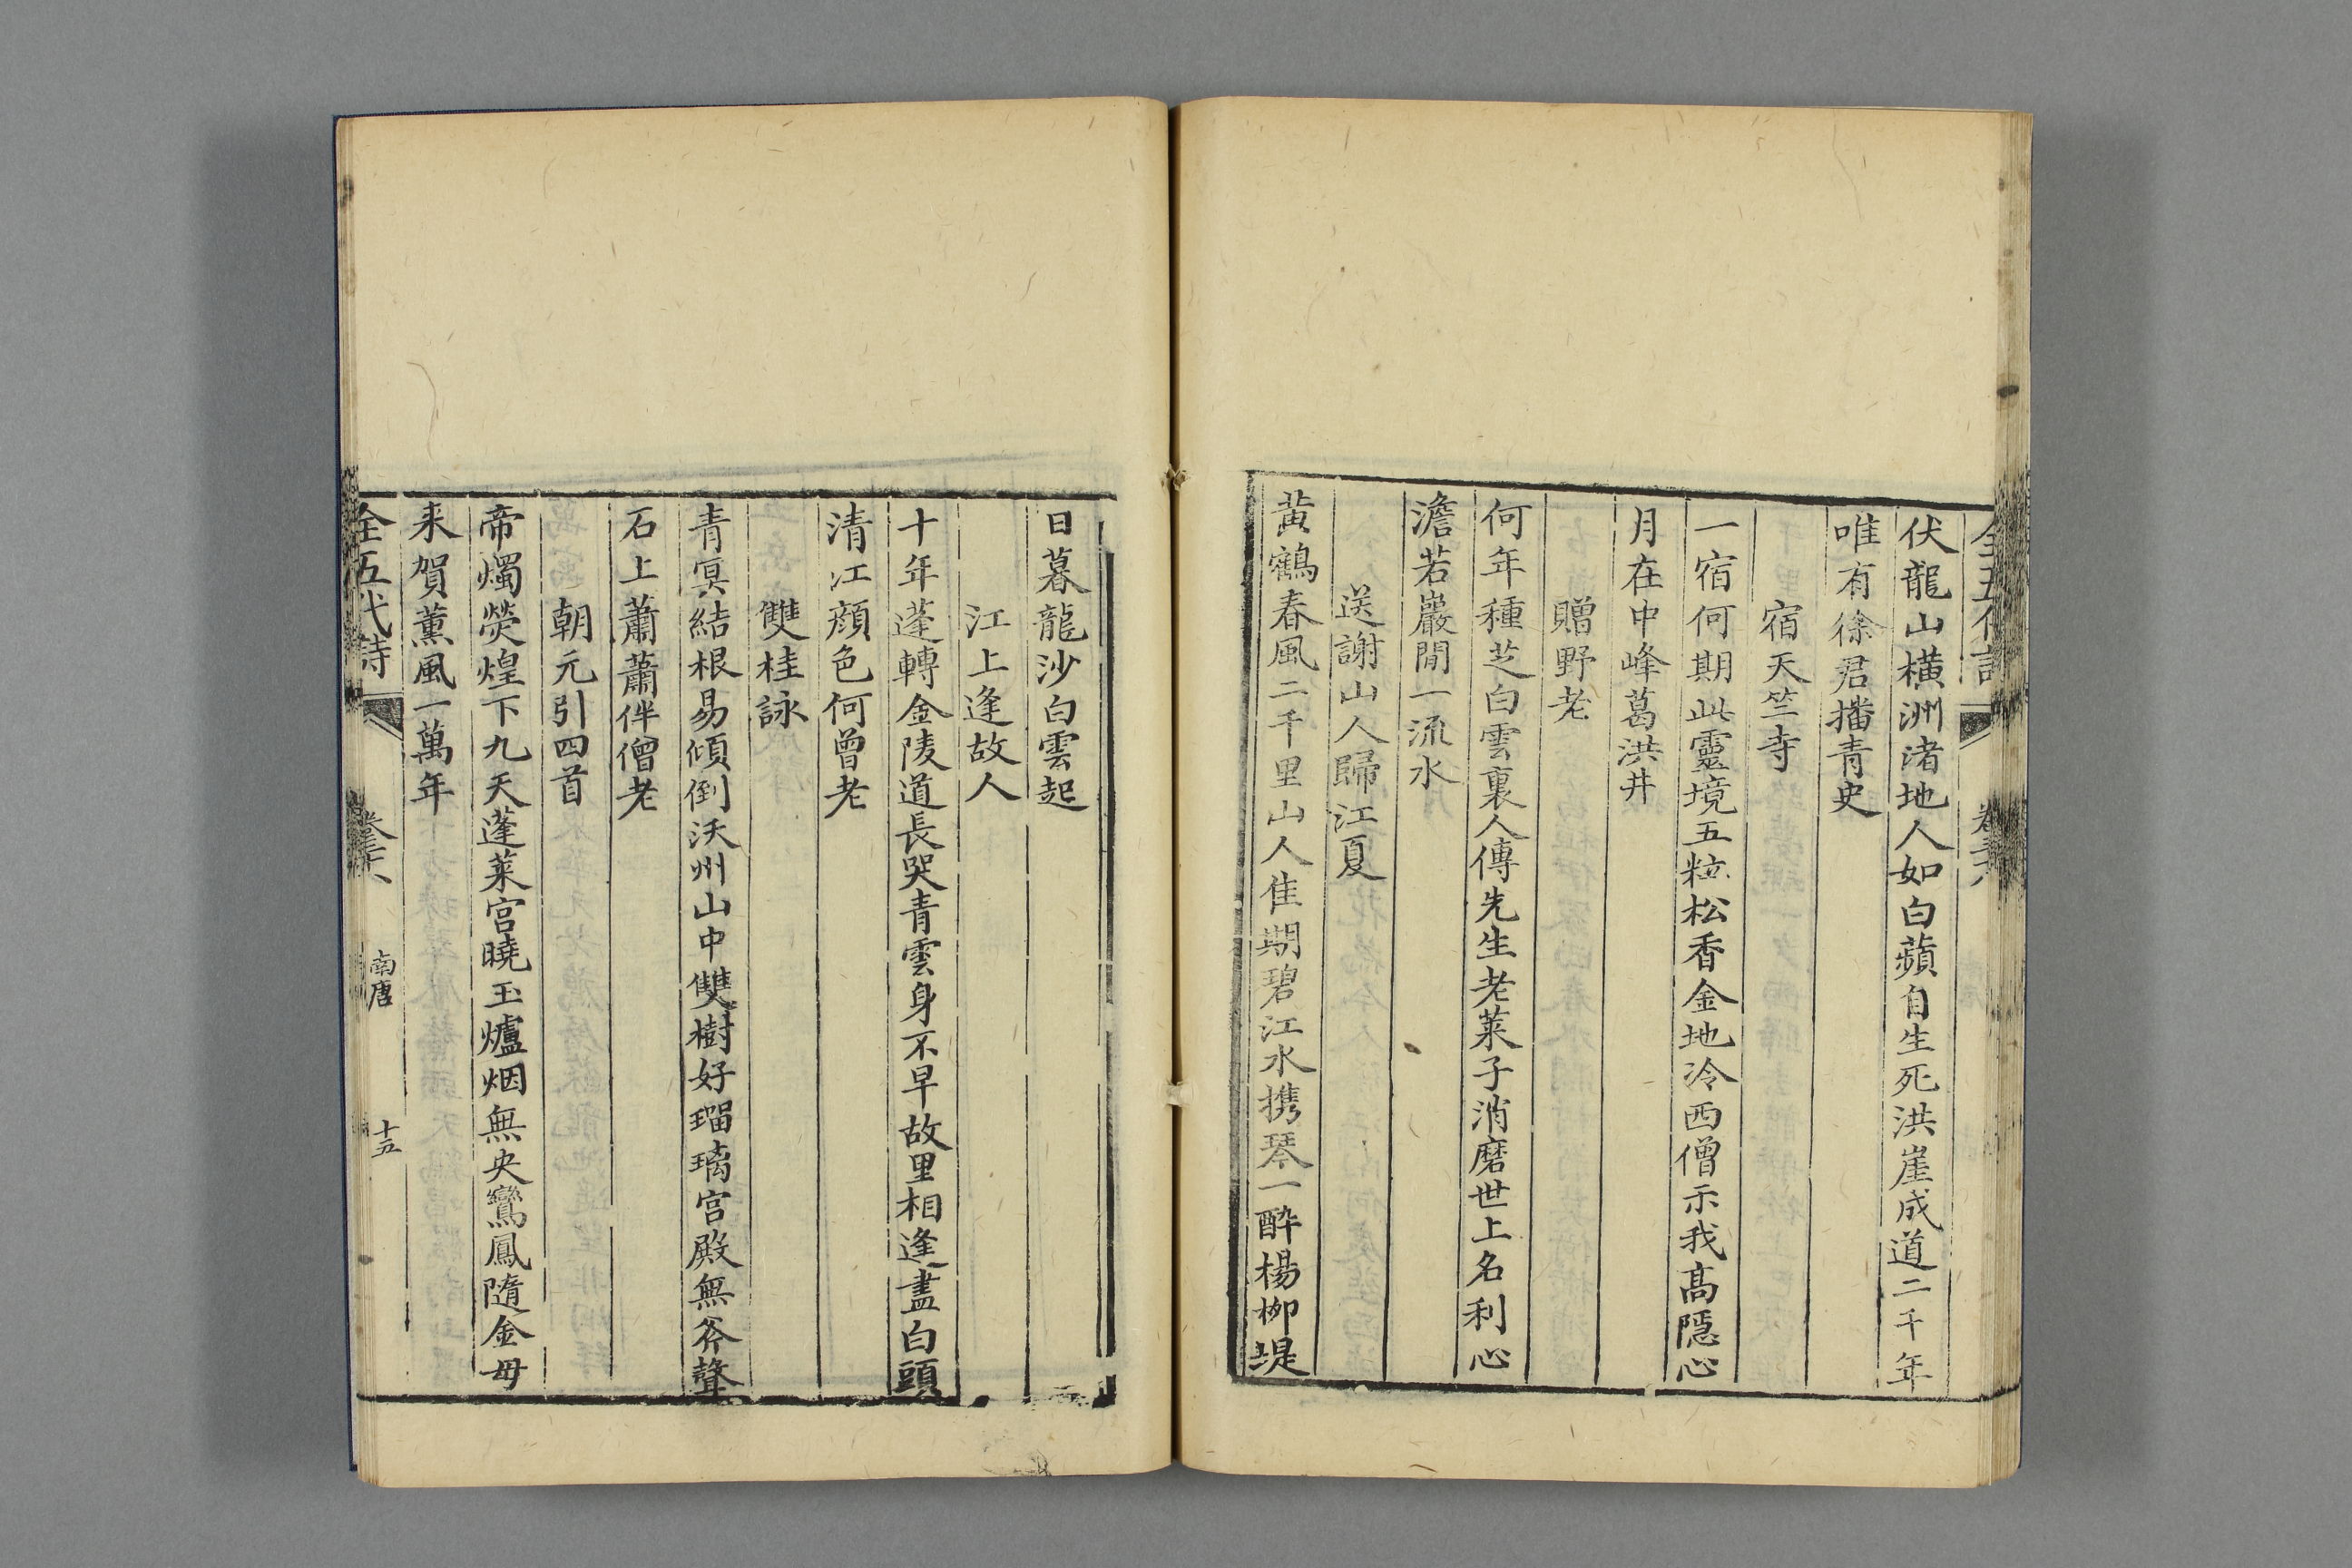 伏龍山橫洲渚地人如白蘋自生死洪崖成道二千年
唯有徐君播青史
宿天竺寺
一宿何期此靈境五粒松香金地冷西僧示我高隱心
月在中峰葛洪井
贈野老
何年種芝白雲裏人傳先生老萊子消磨世上名利心
澹若巖間一流水
送謝山人歸江夏
黃鶴春風二千里山人佳期碧江水携琴一醉楊柳堤
日暮龍沙白雲起
江上逢故人
十年蓬轉金陵道長哭青雲身不早故里相逢盡白頭
清江顔色何曾老
雙桂詠
青冥結根易傾倒沃州山中雙樹好瑠璃宫殿無斧聲
石上蕭蕭伴僧老
朝元引四首
帝燭熒煌下九天蓬萊宮曉玉爐烟無央鸞鳳隨金母
来賀薰風一萬年
全五代詩
南唐
十五